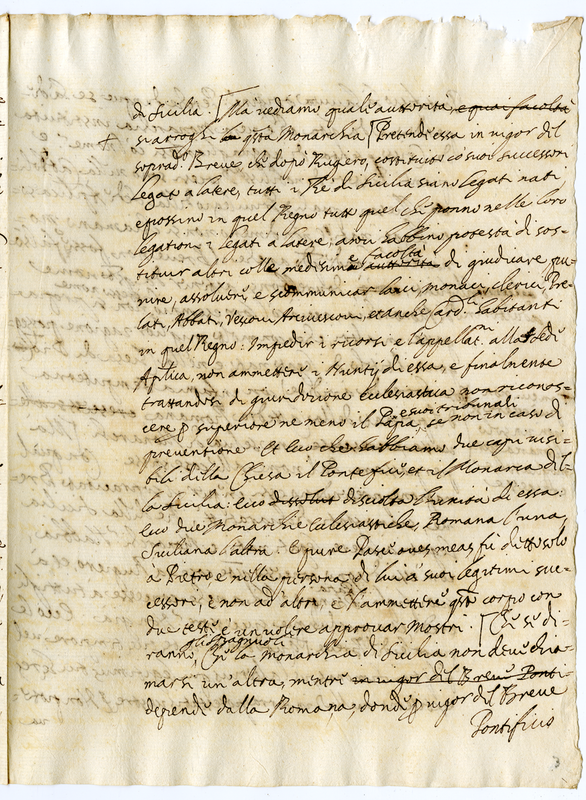 di Sicilia. [Ma vediamo quale autorità, e quai facoltà
si arroghi la qsta Monarchia [Pretende essa in vigor del
soprad.o Breve che dopo Rugero, costituito cò suoi successori
Legati à latere, tutti i Rè di Sicilia siano Legati nati
e possino in quel Regno tutto quel che ponno nelle loro
legationi i Legati à latere, anzi habbino potestà di sos-
tituir altri colle medesime autorità e facoltà di giudicare, pu-
nire, assolvere, e scommunicar laici, monaci, clerici, Pre-
lati, Abbati, Vescovi Arcivescovi, et anche Card.li habitanti
in quel Regno. Impedir i ricorsi e l'appellat.ni alla Sede
Aplica, non ammettere i Nuntij di essa, e finalmente
trattandosi di giuridizione Ecclesiastica non riconos-
cere p superiore ne meno il Papa, e suoi tribunali se non in caso di
preventione. Et ecco che habbiamo due capi visi-
bili della Chiesa il Pontefice, et il Monarca del-
la Sicilia: ecco dissolut disciolta l'unità di essa:
ecco due Monarchie Ecclesiastiche, Romana l'una,
Siciliana l'altra. E pure Pasce oves meas fù detto solo
à Pietro e nella persona di lui à suoi legitimi suc-
cessori, e non ad altri, e l'ammettere qsto corpo con
due teste è un volere approvar Mostri. [Che se di-
ranno, Che la Monarchia di Sicilia non deve chia-
marsi un'altra, mentre in vigor del Breve Ponti-
depende dalla Romana, donde p vigor del Breve
Pontificio